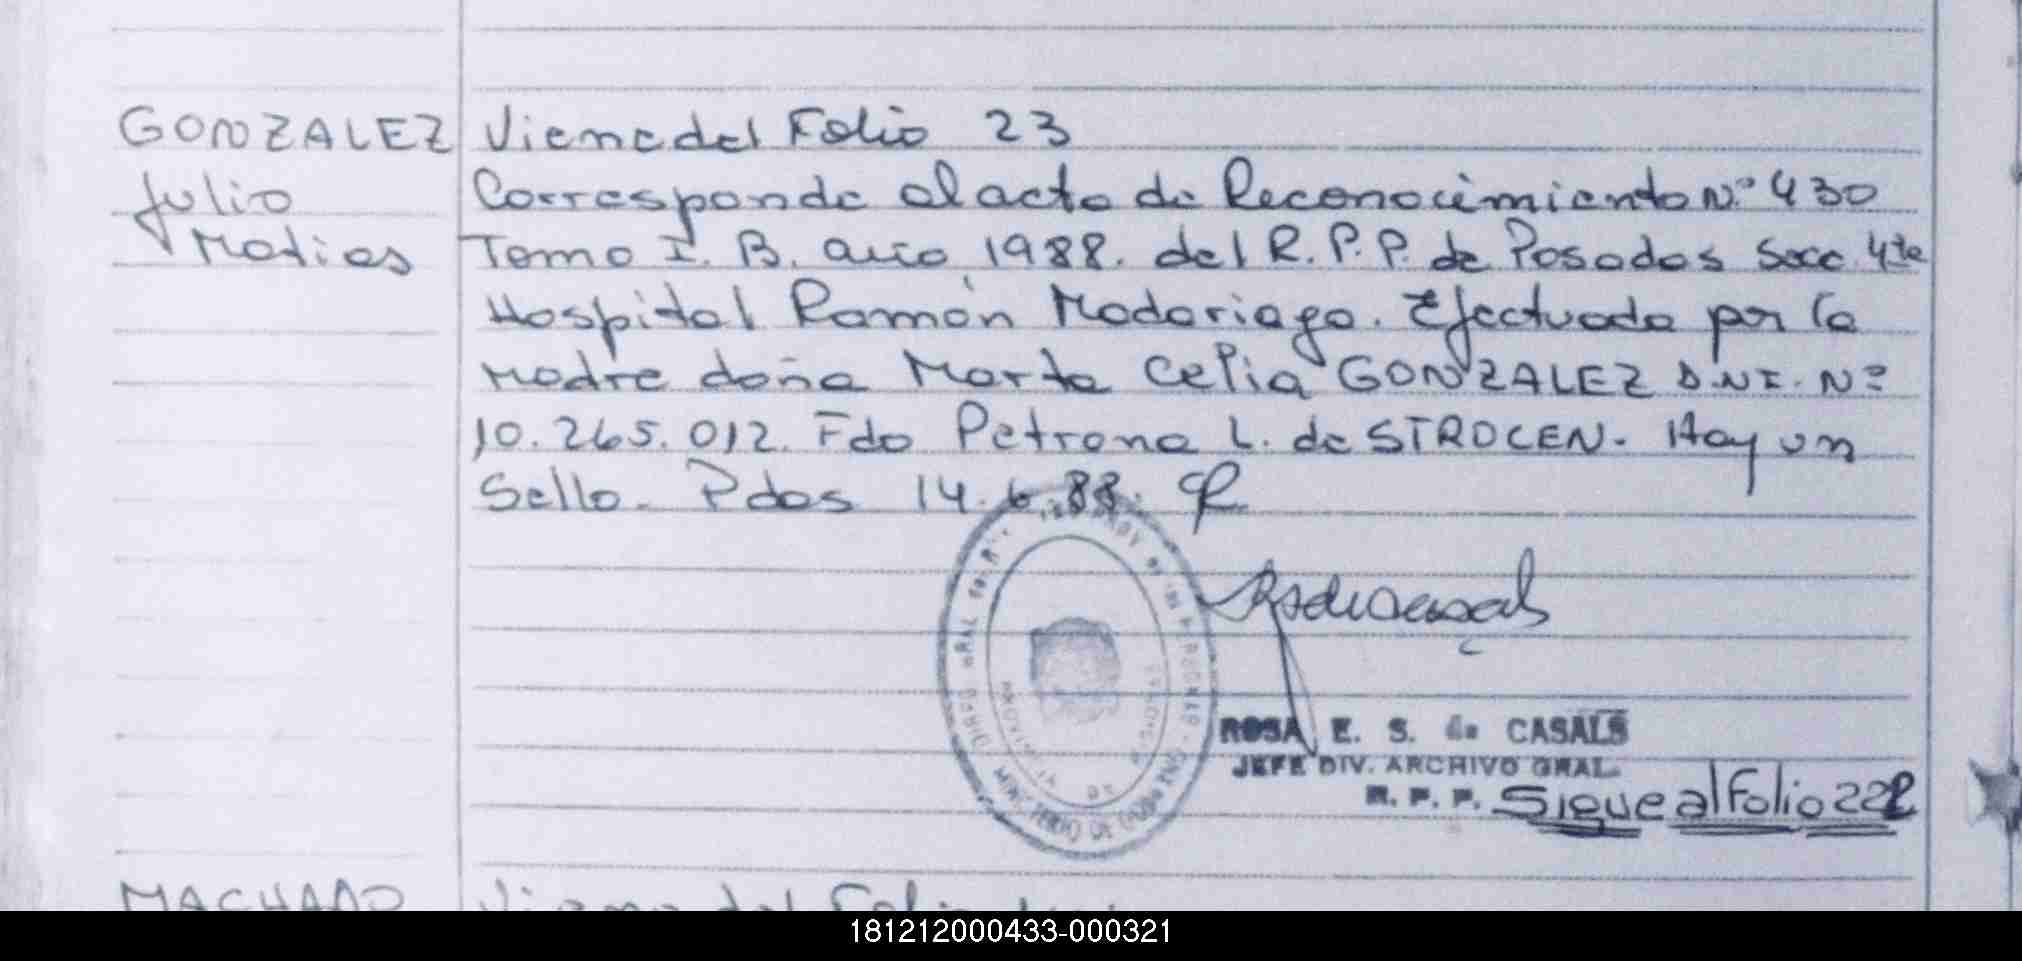 GONZALEZ Viene del Folio 23
Julio Corresponde al acto de Reconocimiento Nº 430
Matias Tomo I. B. año 1988. del R.P.P. de Posadas Secc 4ta
Hospital Ramón Madariaga. Efectuada por la
Madre doña Marta Celia GONZALEZ D.N.I. Nº
10.265.012. Fdo Petrona L. de STROCEN. Hay un
Sello. Pdas 14.6.88.
ROSA E. S. de CASALS
JEFE DIV. ARCHIVO GRAL.
R. P. P. Sigue al Folio 222
MACHADO Viene del Folio
181212000433-000321